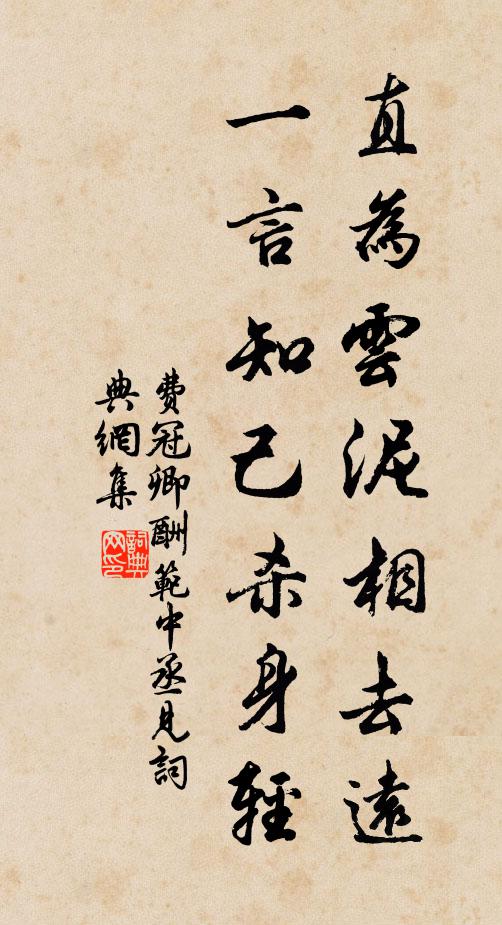 直為雲泥相去遠
一言知己杀身輕
費冠卿酬範中丞見詞
典網集
詞典网印